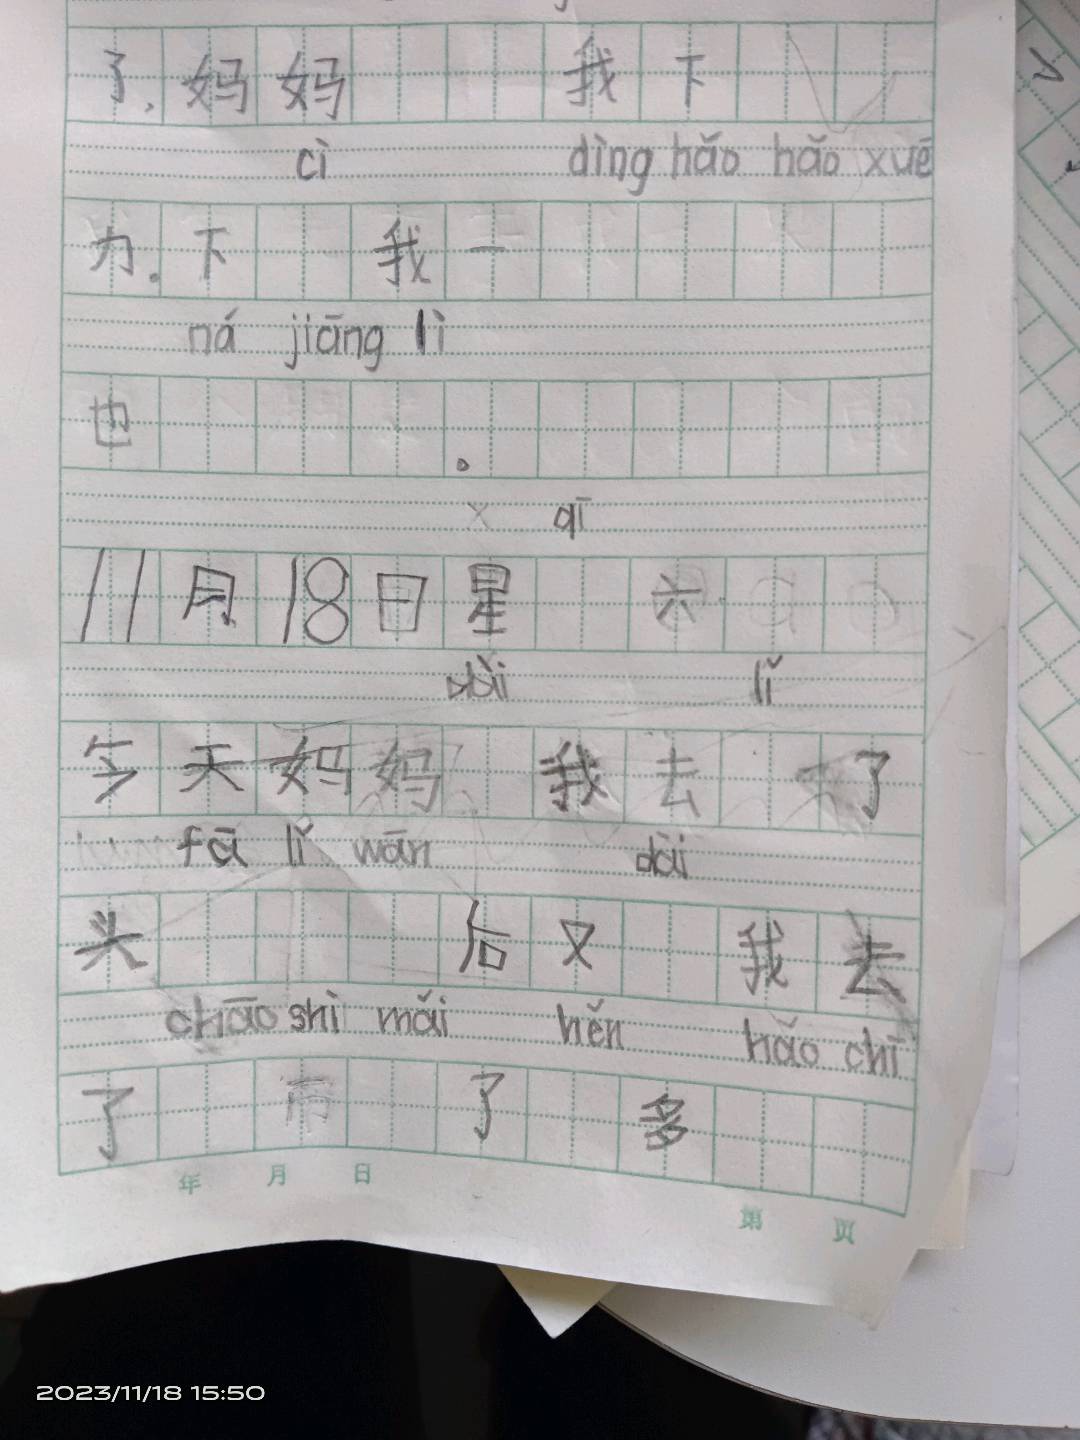 了,妈妈 我下
cì dìng hǎo hǎo xuē
力.下 我一
ná jiāng lì
也 .
x qī
11月18日星 六
dài lǐ
今天妈妈 我去 了
fā lǐ wān dài
头 后又 我去
chāo shì mǎi hěn hǎo chī
了 市 了 多
年 月 日
第 页
2023/11/18 15:50